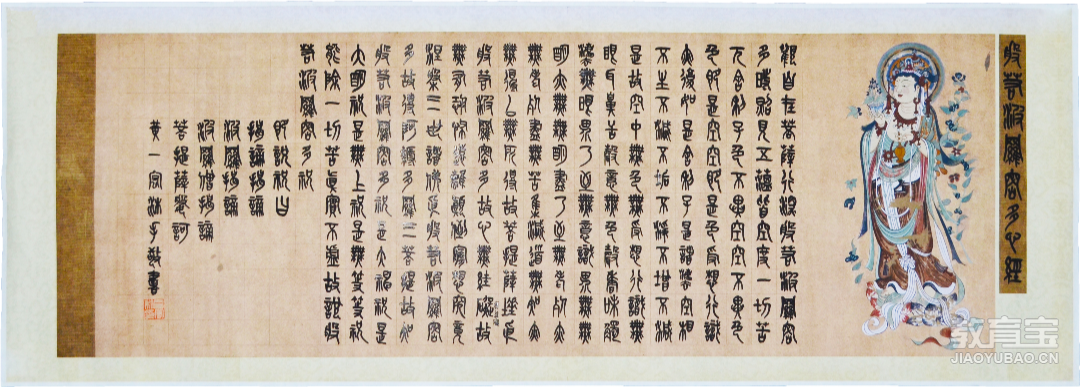 般若波羅密多心經
觀自在菩薩行深般若波羅密
多時照見五蘊皆空度一切苦
厄舍利子色不異空空不異色
色即是空空即是色受想行識
亦復如是舍利子是諸法空相
不生不滅不垢不淨不增不減
是故空中無色無受想行識無
眼耳鼻舌身意無色聲香味觸
法無眼界乃至無意識界無無
明亦無無明盡乃至無老死亦
無老死盡無苦集滅道無知亦
無得以無所得故菩提薩埵依
般若波羅密多故心無罣礙故
無有恐怖遠離顛倒夢想究竟
涅槃三世諸佛依般若波羅密
多故得阿耨多羅三菩提故知
般若波羅密多祝是大神祝是
大明祝是無上祝是無等等祝
能除一切苦真實不虛故說般
若波羅密多祝
即說祝曰
揭諦揭諦
波羅揭諦
波羅僧揭諦
菩提薩婆訶
黃一宗沐手敬書
教育宝
JIAOYUBAO.CN